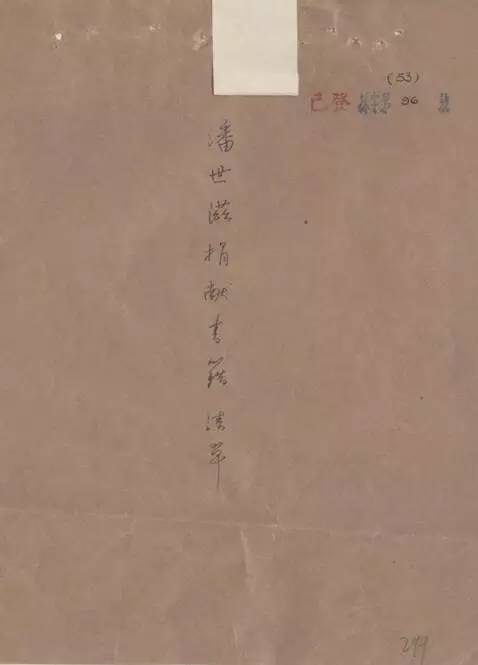 (53)
已登 96 號
潘世滋捐献书籍清单
299